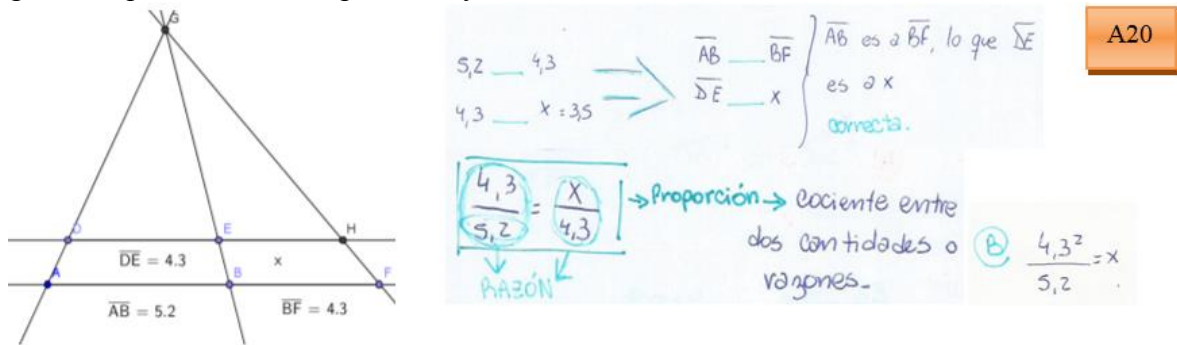 G
D
E
H
DE = 4.3
x
A
B
F
AB = 5.2
BF = 4.3
5,2 __ 4,3
4,3 __ x = 3,5
AB __ BF
DE __ x
AB es a BF, lo que DE
es a x
correcta.
A20
4,3 / 5,2 = x / 4,3
→ Proporción → cociente entre
dos cantidades o
razones.-
RAZÓN
B 4,3² / 5,2 = x